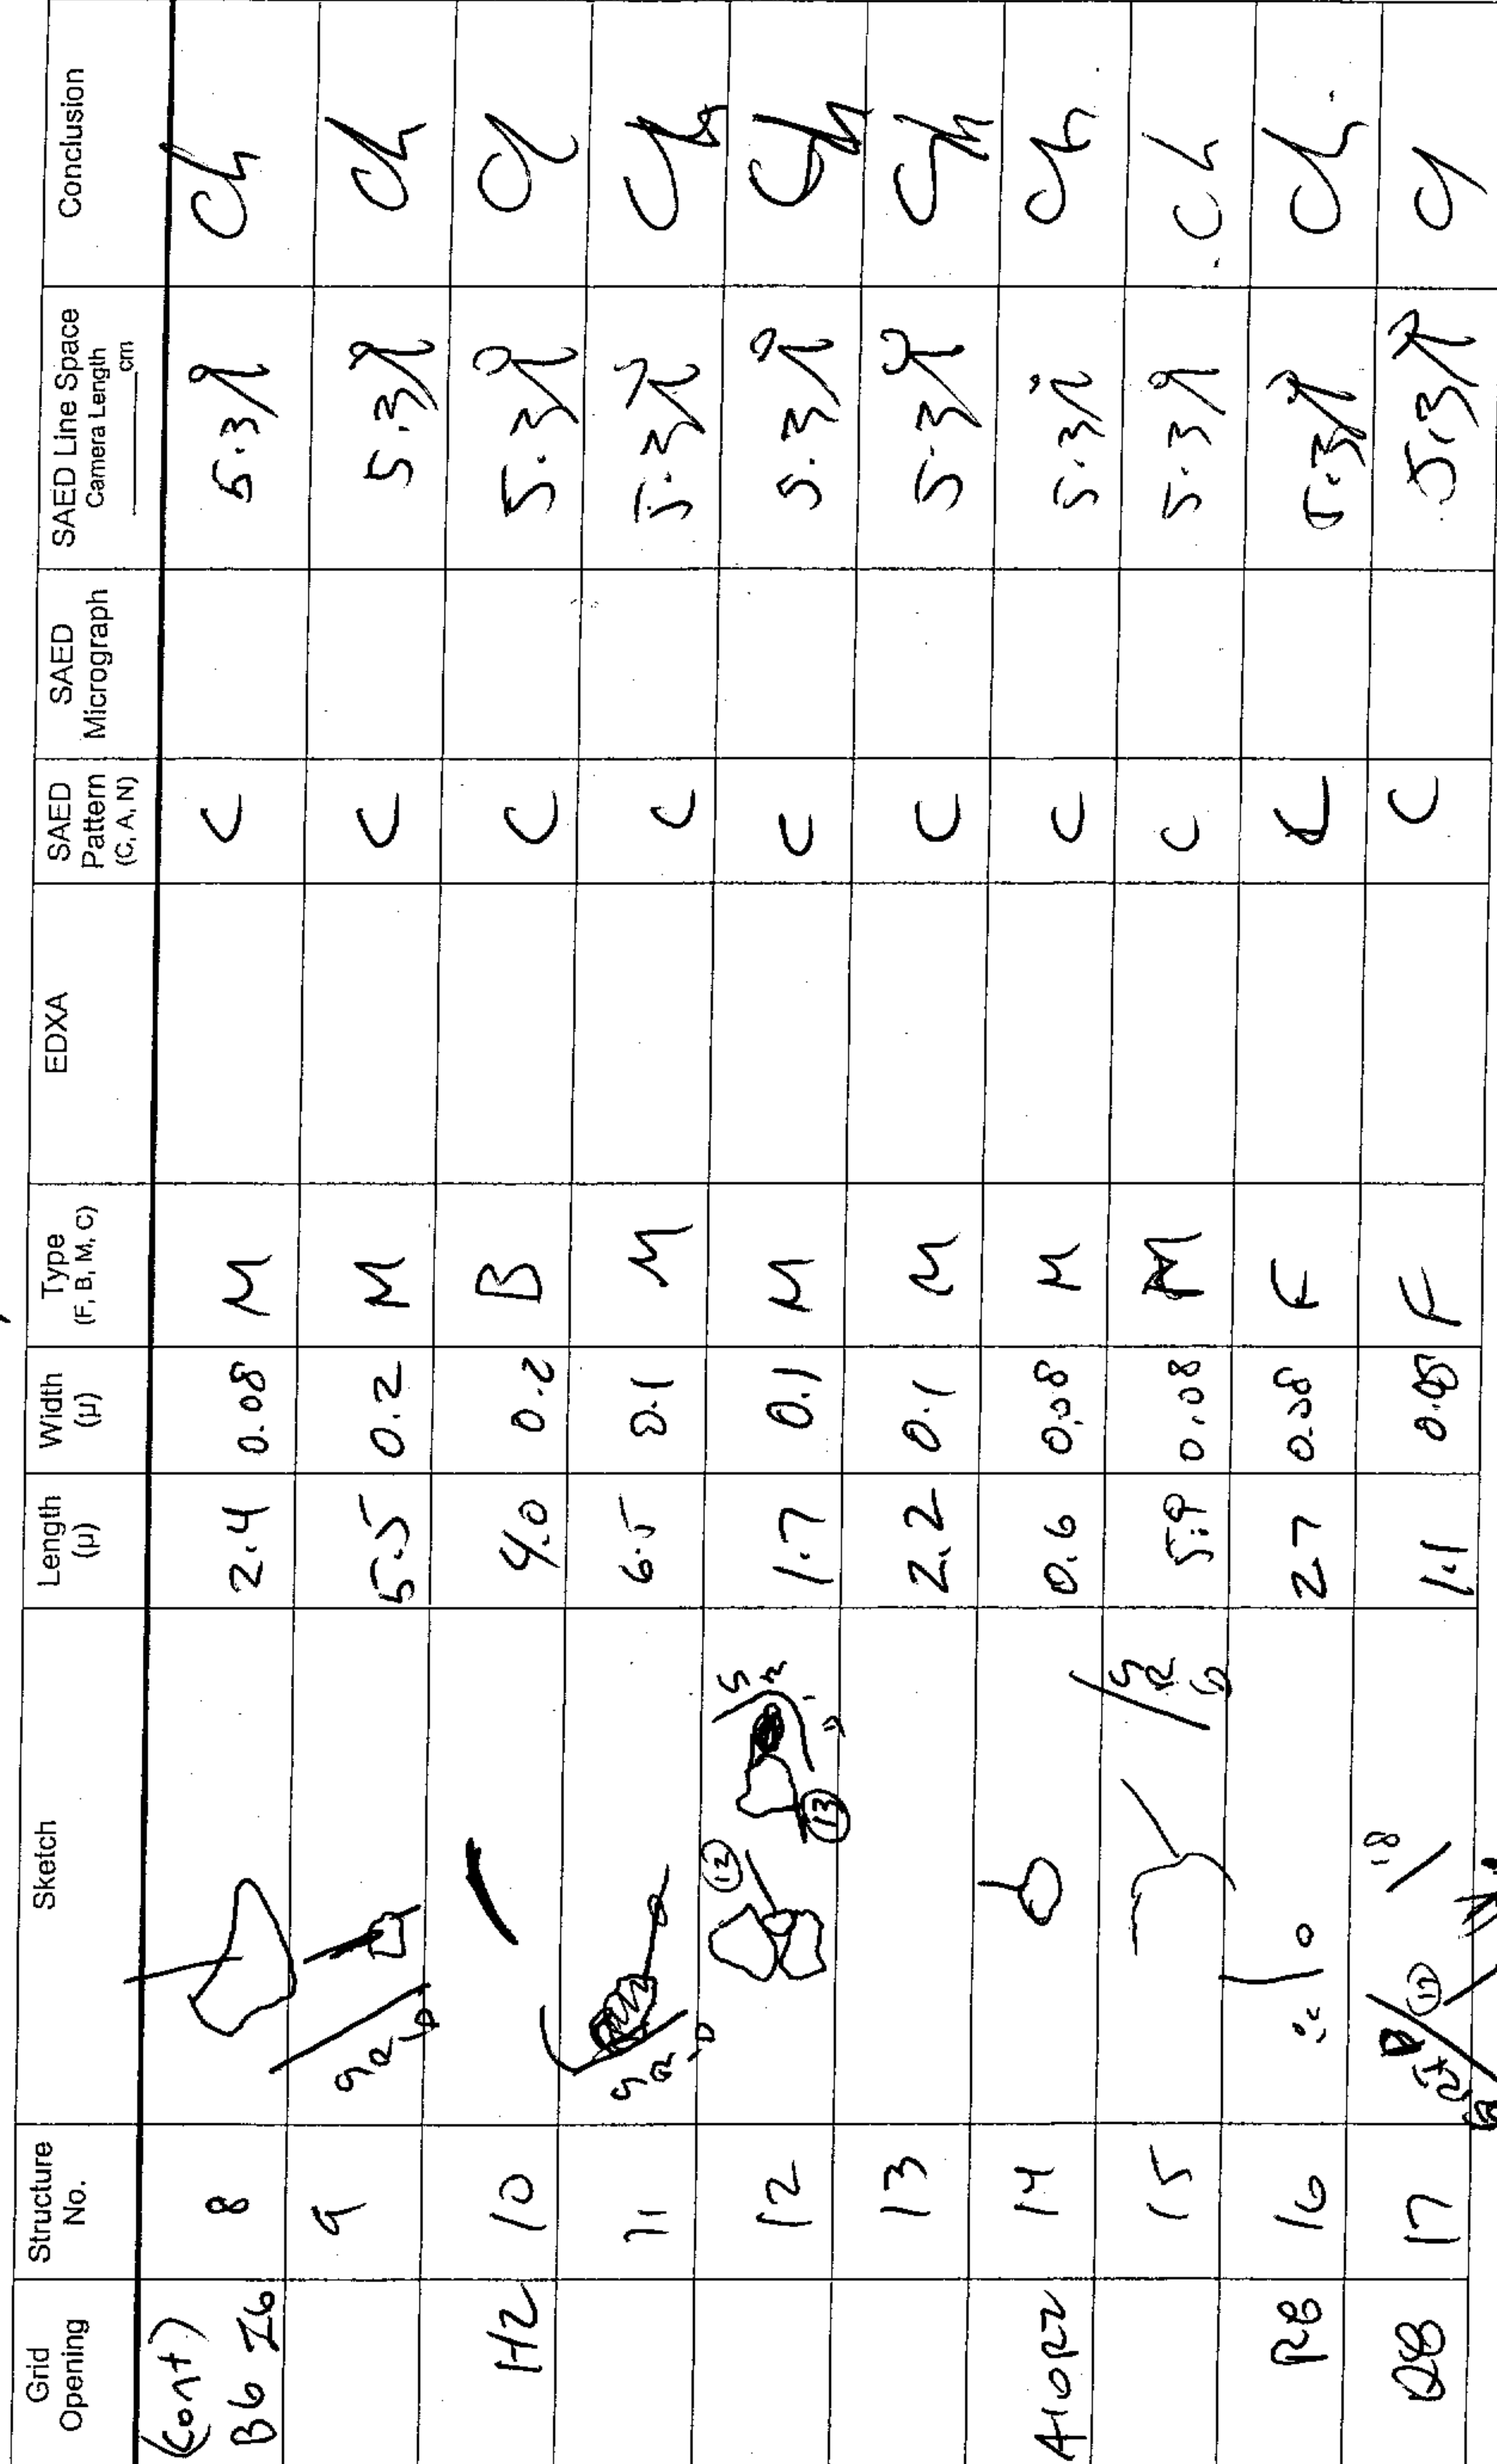 Grid Opening Structure No. Sketch Length (µ) Width (µ) Type (F, B, M, C) EDXA SAED Pattern (C, A, N) SAED Micrograph SAED Line Space Camera Length ____ cm Conclusion
(Cont) B6 I6 8 2.4 0.08 M C 5.3Å Ch
9 5.5 0.2 M C 5.3Å Ch
H2 10 4.0 0.2 B C 5.3Å Ch
11 6.5 0.1 M C 5.3Å Ch
12 (12) (13) 1.7 0.1 M C 5.3Å Ch
13 2.2 0.1 M C 5.3Å Ch
14 0.6 0.08 M C 5.3Å Ch
15 5.9 0.08 M C 5.3Å Ch
16 2.7 0.08 F C 5.3Å Ch
17 1.1 F C 5.3Å